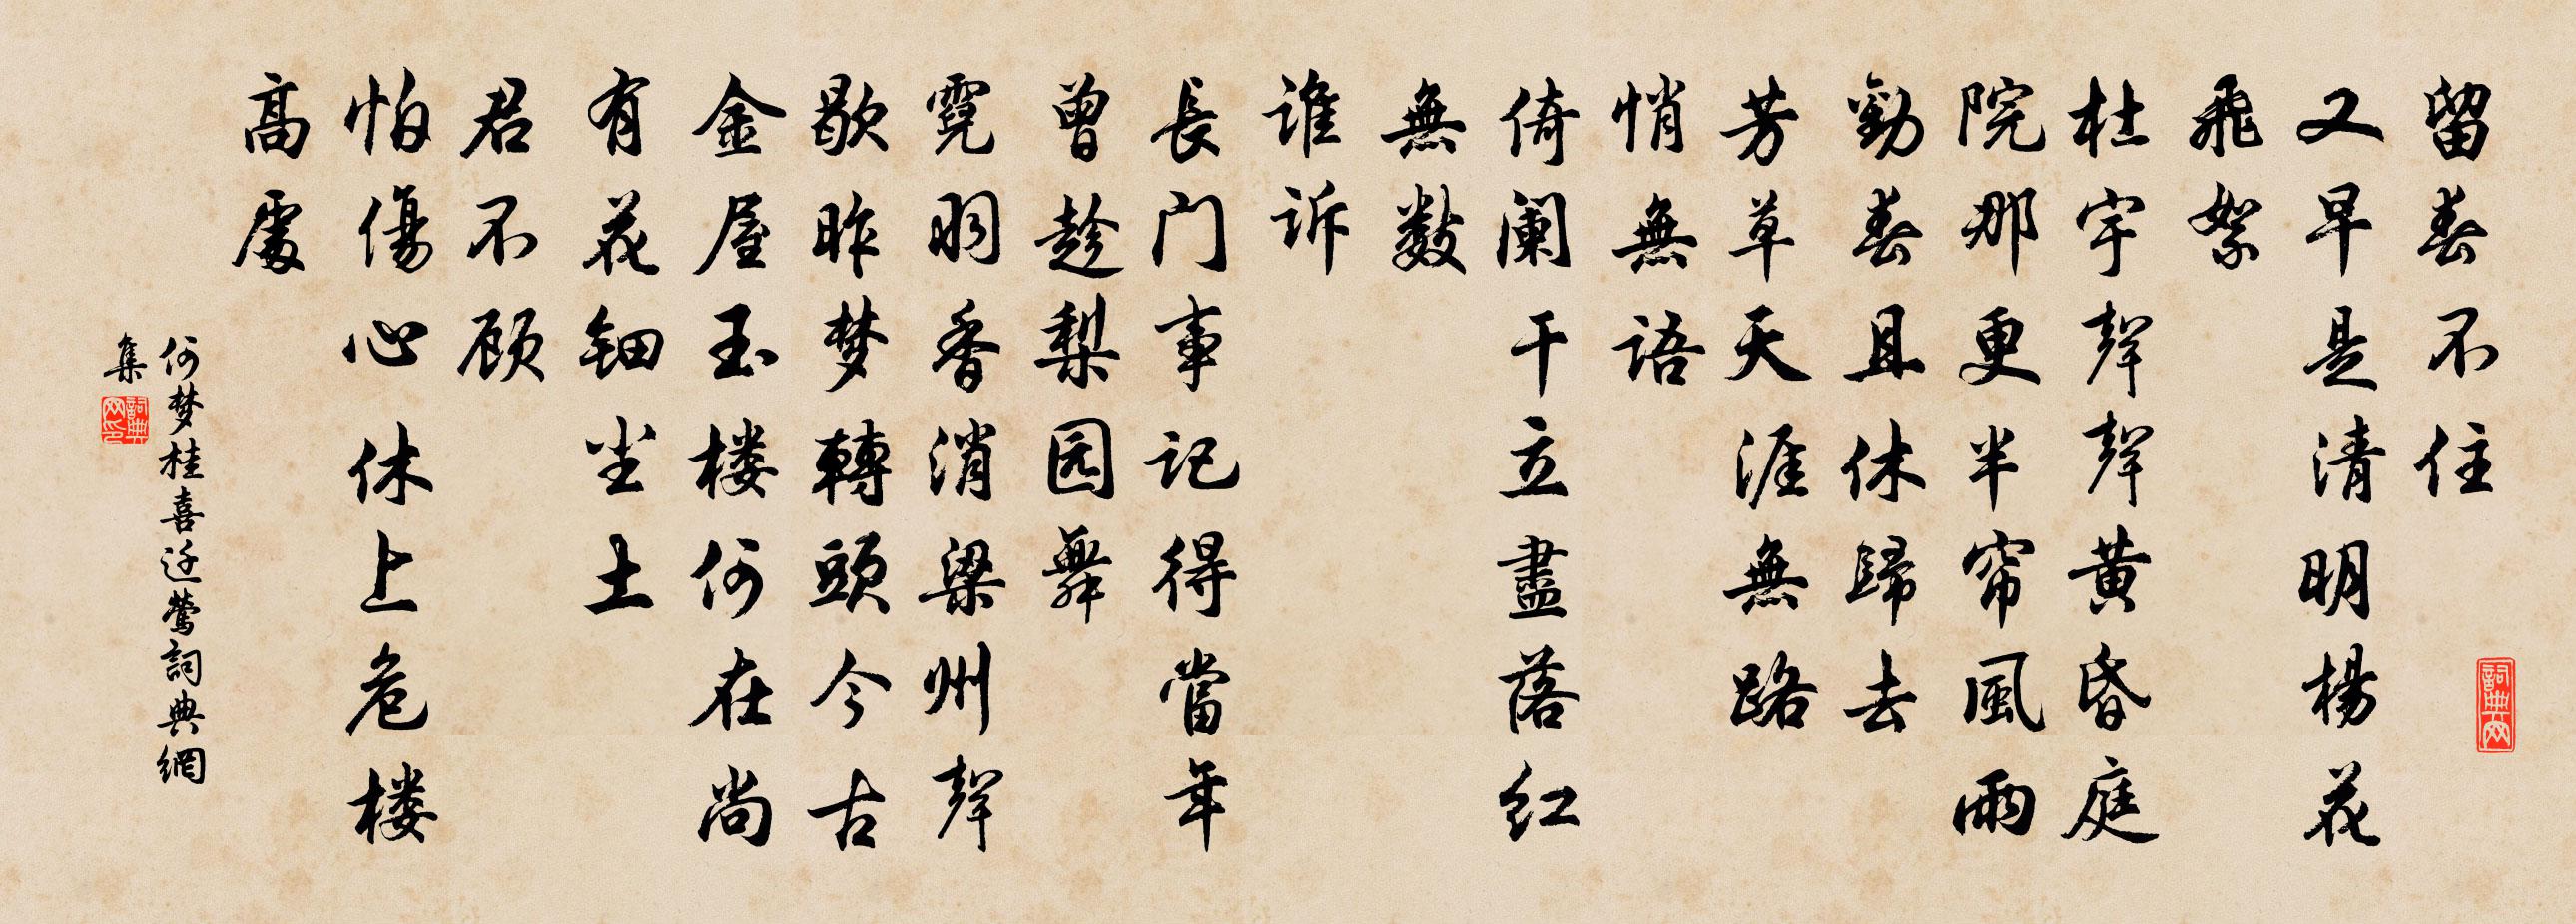 留春不住
又早是清明楊花
飛絮
杜宇聲聲黄昏庭
院那更半帘風雨
勸春且休歸去
芳草天涯無路
悄無語
倚阑干立盡落红
無數
谁诉
長门事记得當年
曾趁梨园舞
霓羽香消梁州聲
歇昨梦轉頭今古
金屋玉楼何在尚
有花钿尘土
君不顾
怕傷心休上危楼
高處
何梦桂喜迁莺詞典網
集
詞典网
詞典网印